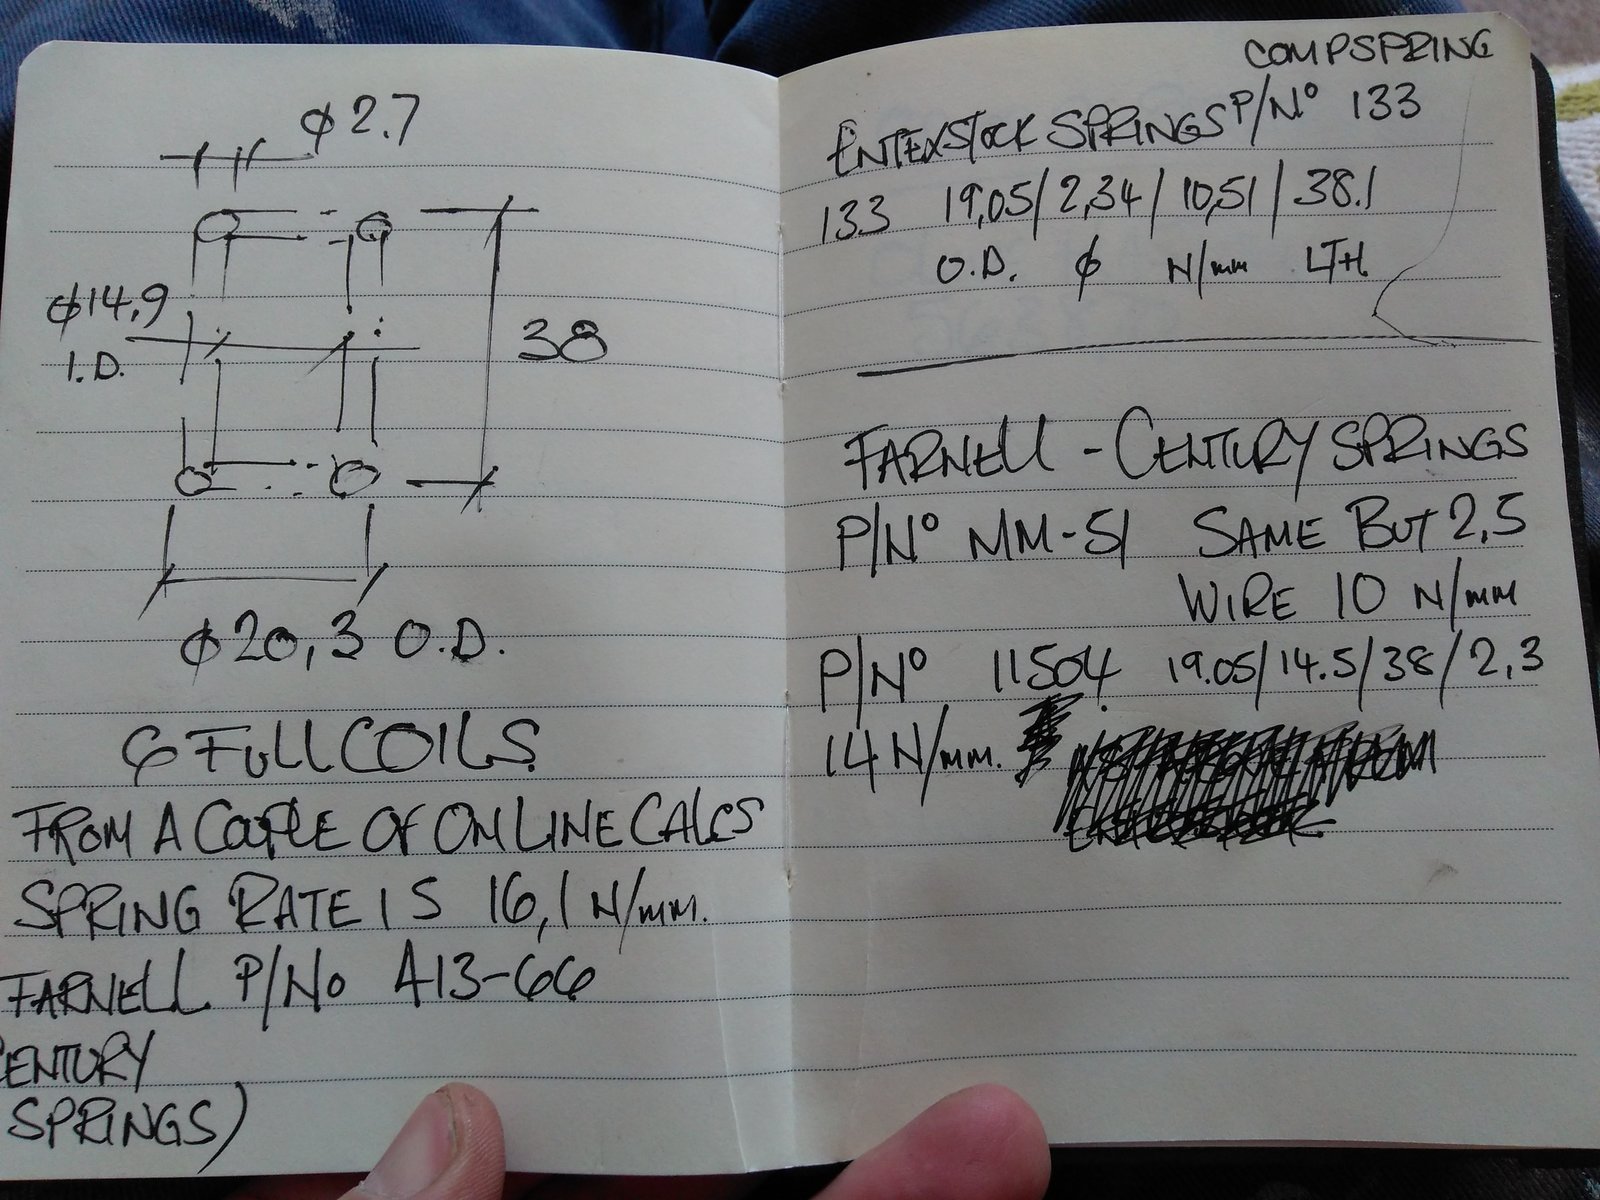 ϕ2.7
ϕ14,9
I.D.
38
ϕ20,3 O.D.
6 FULL COILS.
FROM A COUPLE OF ONLINE CALCS
SPRING RATE IS 16,1 N/mm.
FARNELL P/No A13-66
CENTURY
SPRINGS)
COMPSPRING
ENTEX STOCK SPRINGS P/Nº 133
133 19,05/2,34/10,51/38.1
O.D. ϕ N/mm LTH.
FARNELL - CENTURY SPRINGS
P/Nº MM-51 SAME BUT 2,5
WIRE 10 N/mm
P/Nº 11504. 19.05/14.5/38/2,3
14 N/mm.